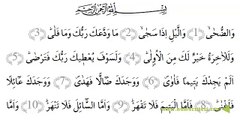 بِسْمِ اللَّهِ الرَّحْمَٰنِ الرَّحِيمِ
وَالضُّحَىٰ (1) وَاللَّيْلِ إِذَا سَجَىٰ (2) مَا وَدَّعَكَ رَبُّكَ وَمَا قَلَىٰ (3)
وَلَلْآخِرَةُ خَيْرٌ لَكَ مِنَ الْأُولَىٰ (4) وَلَسَوْفَ يُعْطِيكَ رَبُّكَ فَتَرْضَىٰ (5)
أَلَمْ يَجِدْكَ يَتِيمًا فَآوَىٰ (6) وَوَجَدَكَ ضَالًّا فَهَدَىٰ (7) وَوَجَدَكَ عَائِلًا
فَأَغْنَىٰ (8) فَأَمَّا الْيَتِيمَ فَلَا تَقْهَرْ (9) وَأَمَّا السَّائِلَ فَلَا تَنْهَرْ (10) وَأَمَّا